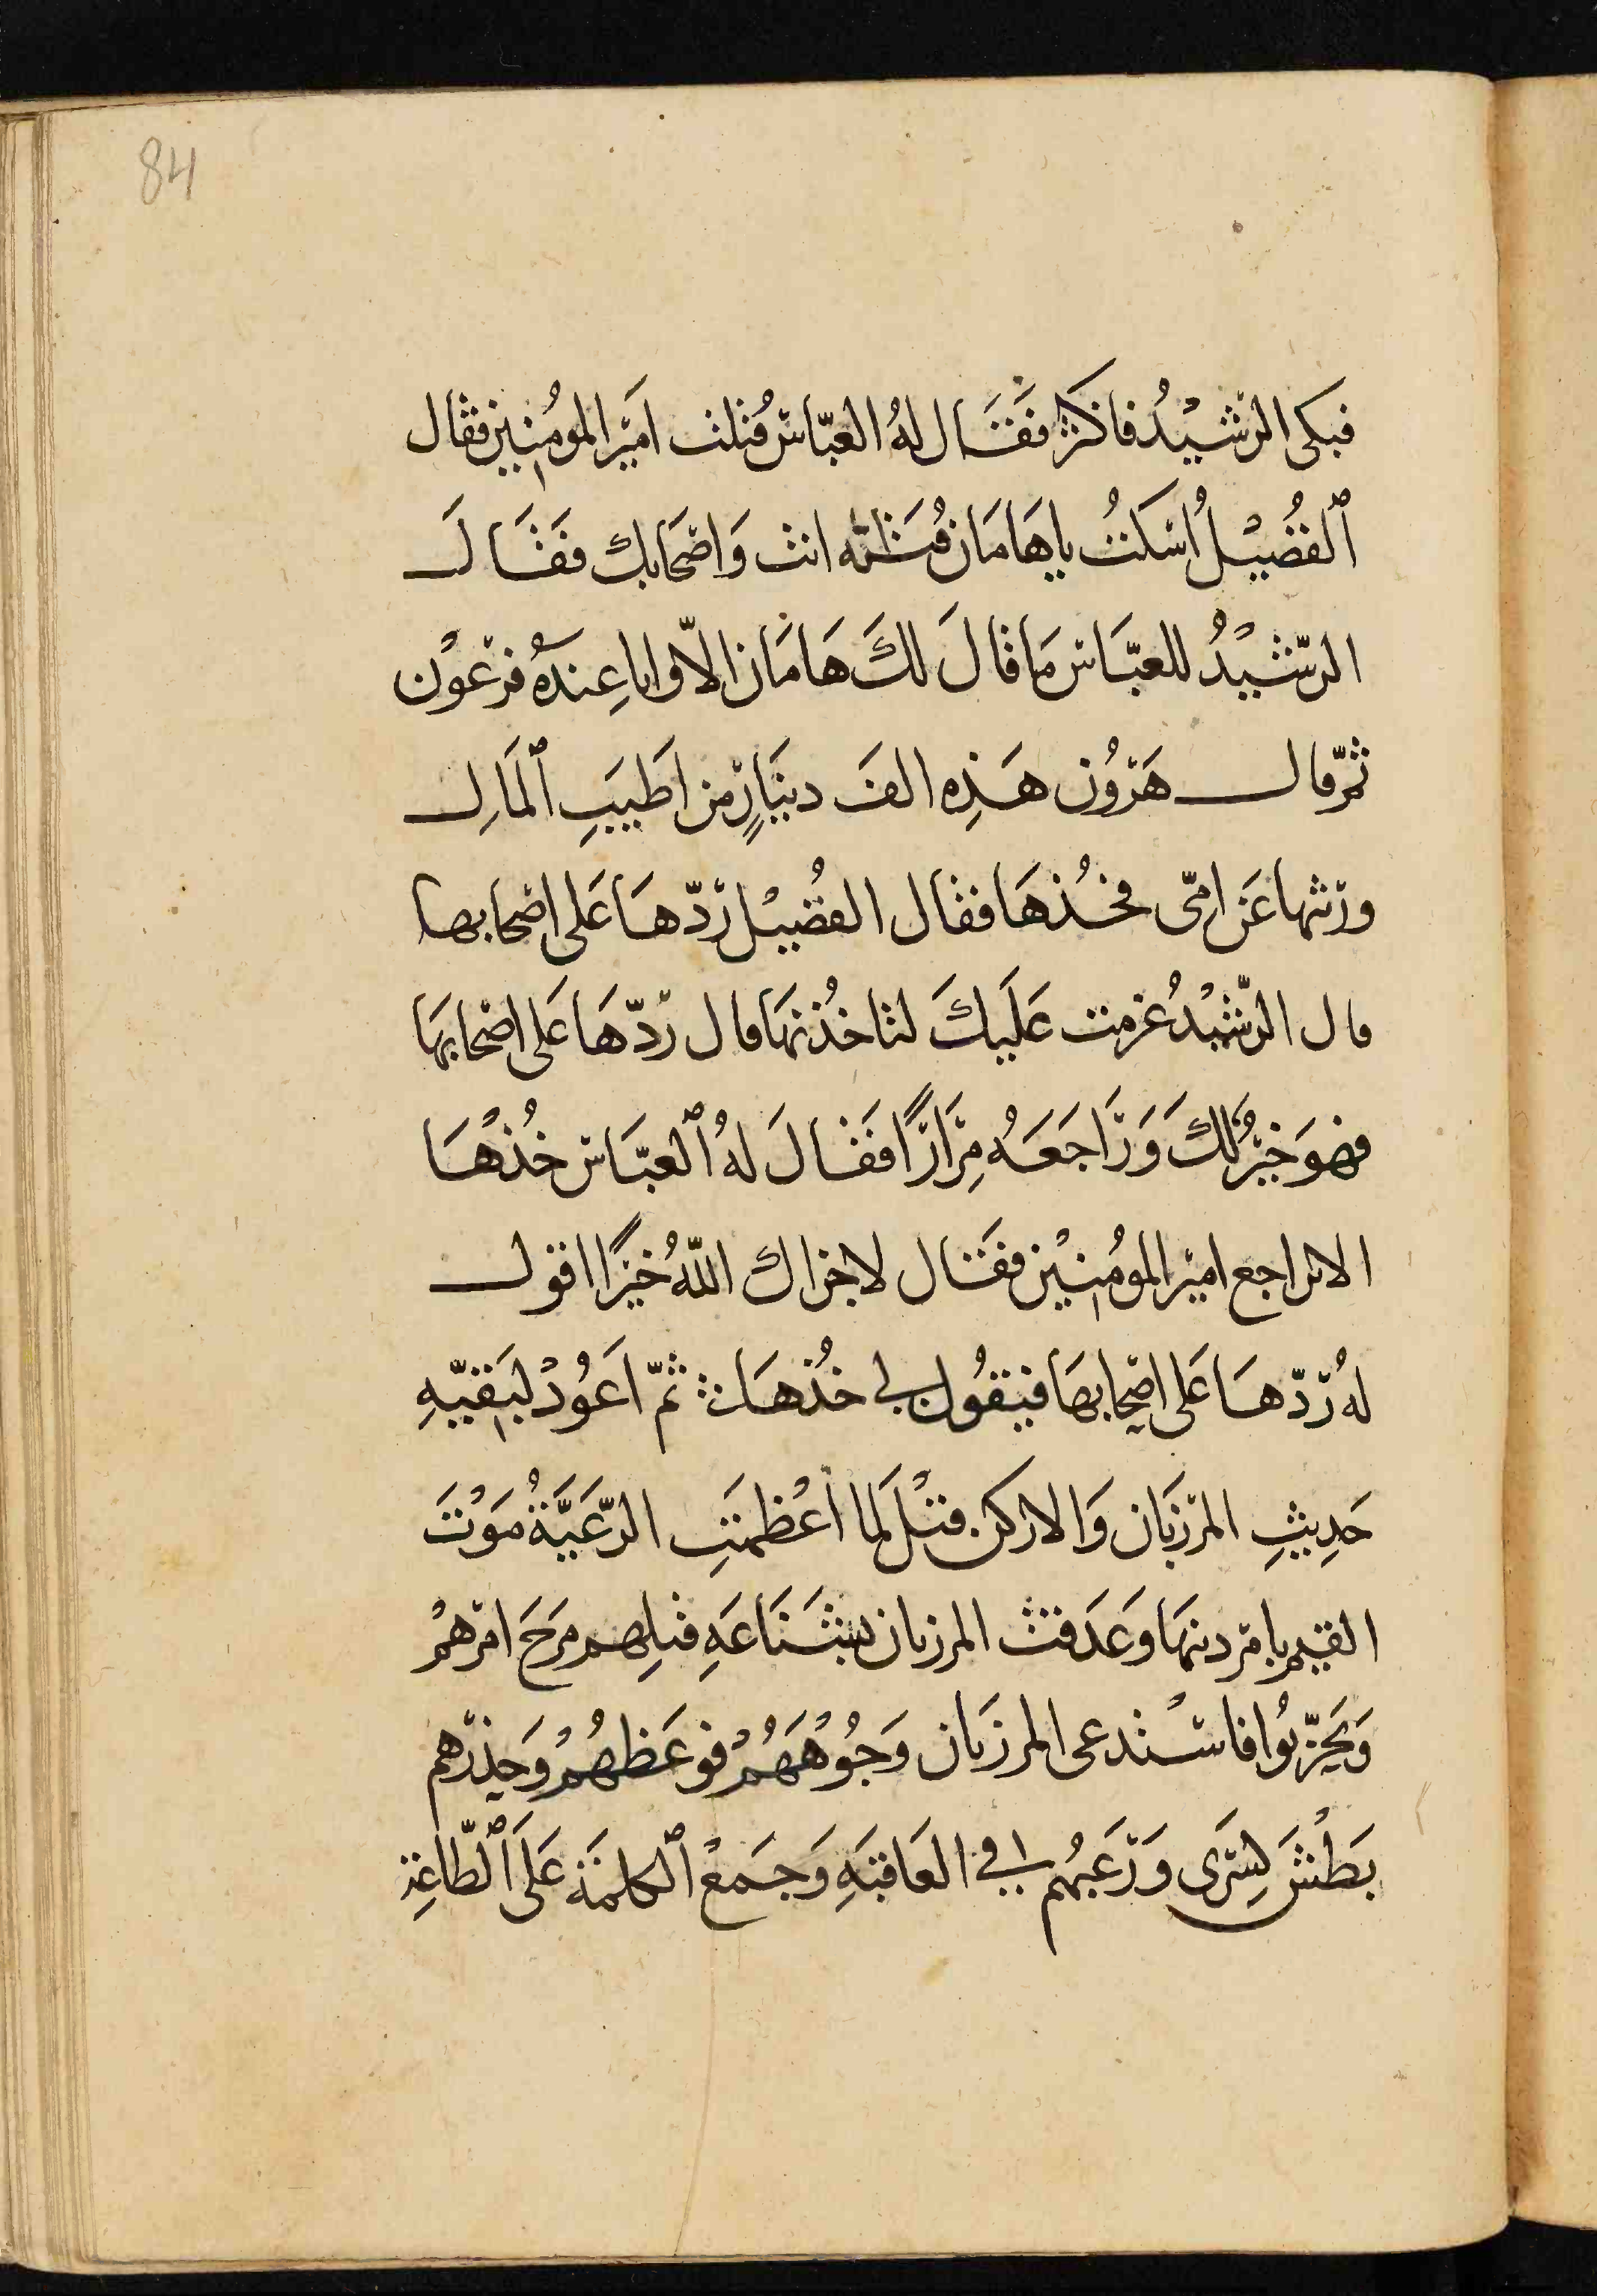 84
فبكى الرّشيْدُ فاكثر فَقَال لهُ العبّاس قتلت اَميْر المومُنِين فقال
ٱلفُضَيْلُ اُسْكتُ ياهَامَان قتلته انت وَاصْحَابك فَقَالَ
الرّشيْدُ للعبّاس مَا قَالَ لكَ هَامَان الاّ وانا عِندهُ فرْعَوْن
ثمّ قال هَرُون هَذِه الفَ دينَارٍ من اَطيَبِ ٱلمَالِ
ورثتها عَن امّى فخُذهَا فقَال الفضُيْل رُدّهَا عَلى اصْحابها
قال الرّشيْدُ عزمت عَلَيكَ لتاخُذنهَا قال رُدّهَا عَلى اصْحابهَا
فهوَ خيْرٌ لكَ وَرَاجَعَهُ مِرَارًا فَقَالَ لهُ ٱلعبّاس خُذْهَا
الا تراجع اميْر المومُنِيْن فَقَال لا جزاك اللّهُ خيْرًا اقول
لهُ رُدّهَا عَلى اصْحابهَا فيَقوُل لي خُذهَا ثمّ اَعُودُ لبَقيّهِ
حَدِيثِ المرْزبَان وَالاركن قيْل لما اَعْظمَتِ الرّعَيّةُ مَوْتَ
القيم بامر دينهَا وَعَدَقت المرزبان بشَنَاعَهِ قتِلِهم مَرَحَ امْرهُمْ
وَتحَزّبوُا فاسْتدعى المرزبَان وَجُوْهَهُمْ فوعَظهُمْ وَحذرهم
بَطْشَ كِسْرَى وَرَغبُهم في العَاقبَهِ وَجَمعْ ٱلكلمَة عَلَى ٱلطّاعِة